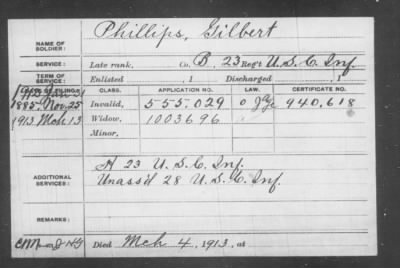 Phillips, Gilbert
NAME OF SOLDIER:
SERVICE: Late rank, Co. B, 23 Reg't U.S.C. Inf.
TERM OF SERVICE: Enlisted , 1 Discharged , 1
CLASS. APPLICATION NO. LAW. CERTIFICATE NO.
1885. Nov. 25 Invalid, 555.029 940,618
1913, Mch 13 Widow, 1003696
Minor,
ADDITIONAL SERVICES: A 23 U.S.C. Inf.
Unass'd 28 U.S.C. Inf.
REMARKS:
Died Mch 4, 1913, at